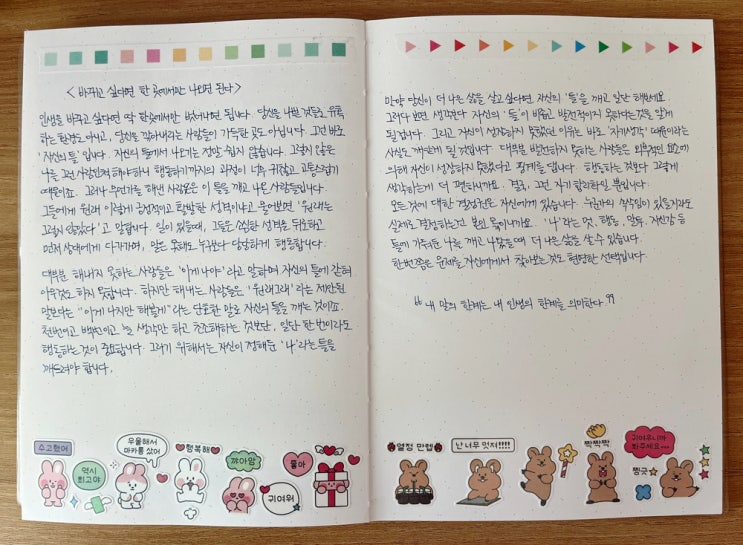 < 바꾸고 싶다면 한 곳에서만 나오면 된다 >
인생을 바꾸고 싶다면 딱 한곳에서만 벗어나면 됩니다. 당신을 나쁜 것들로 유혹
하는 환경도 아니고, 당신을 깎아내리는 사람들이 가득한 곳도 아닙니다. 그건 바로
'자신의 틀' 입니다. 자신의 틀에서 나오기는 정말 쉽지 않습니다. 그렇지 않은
나를 그런 사람인척 해야하니 행동하기까지의 과정이 너무 귀찮고, 고통스럽기
때문이죠. 그러나 무언가를 해낸 사람들은 이 틀을 깨고 나온 사람들입니다.
그들에게 원래 이렇게 긍정적이고 활발한 성격이냐고 물어보면 '원래는
그렇지 않았다' 고 말합니다. 일이 있을때, 그들은 소심한 성격을 뒤로하고
먼저 상대에게 다가가며, 말은 못해도 누구보다 당당하게 행동합니다.
대부분 해내지 못하는 사람들은 '이게 나야' 라고 말하며 자신의 틀에 갇혀
아무것도 하지 못합니다. 하지만 해내는 사람들은 '원래그래' 라는 제한된
말보다는 "이게 나지만 해볼게" 라는 단호한 말로 자신의 틀을 깨는 것이죠.
천번이고 백번이고 늘 생각만 하고 존조해하는 것보단, 일단 한번이라도
행동하는 것이 중요합니다. 그러기 위해서는 자신이 정해둔 '나'라는 틀을
깨뜨려야 합니다.
수고했어
역시
최고야
우울해서
마카롱 샀어
행복해
꺄아암
귀여워
몰아
만약 당신이 더 나은 삶을 살고 싶다면 자신의 '틀'을 깨고 일단 해보세요.
그러다 보면 생각보다 자신의 '틀'이 비좁고 발전적이지 못하다는 것을 알게
될 겁니다. 그리고 자신이 성장하지 못했던 이유는 바로 '자기생각' 때문이라는
사실도 깨닫게 될 것입니다. 대부분 발전하지 못하는 사람들은 외부적인 요소에
의해 자신이 성장하지 못했다고 핑계를 댑니다. 행동하는 것보다 그렇게
생각하는게 더 편하니까요. 결국, 그건 자기 합리화일 뿐입니다.
모든 것에 대한 결정권은 자신에게 있습니다. 누군가의 부탁임이 있을지라도
실제로 결정하는건 본인 몫이니까요. '나' 라는 멋, 행동, 말투, 자신감 등
틀에 가둬둔 나를 깨고 나왔을때 더 나은 삶을 살 수 있습니다.
한번쯤은 문제를 자신에게서 찾아보는것도 현명한 선택입니다.
" 내 말의 한계는 내 인생의 한계를 의미한다. "
열정 만렙
난 너무 멋져!!!!
짝짝짝
찡긋
귀여우니까
봐주세요...